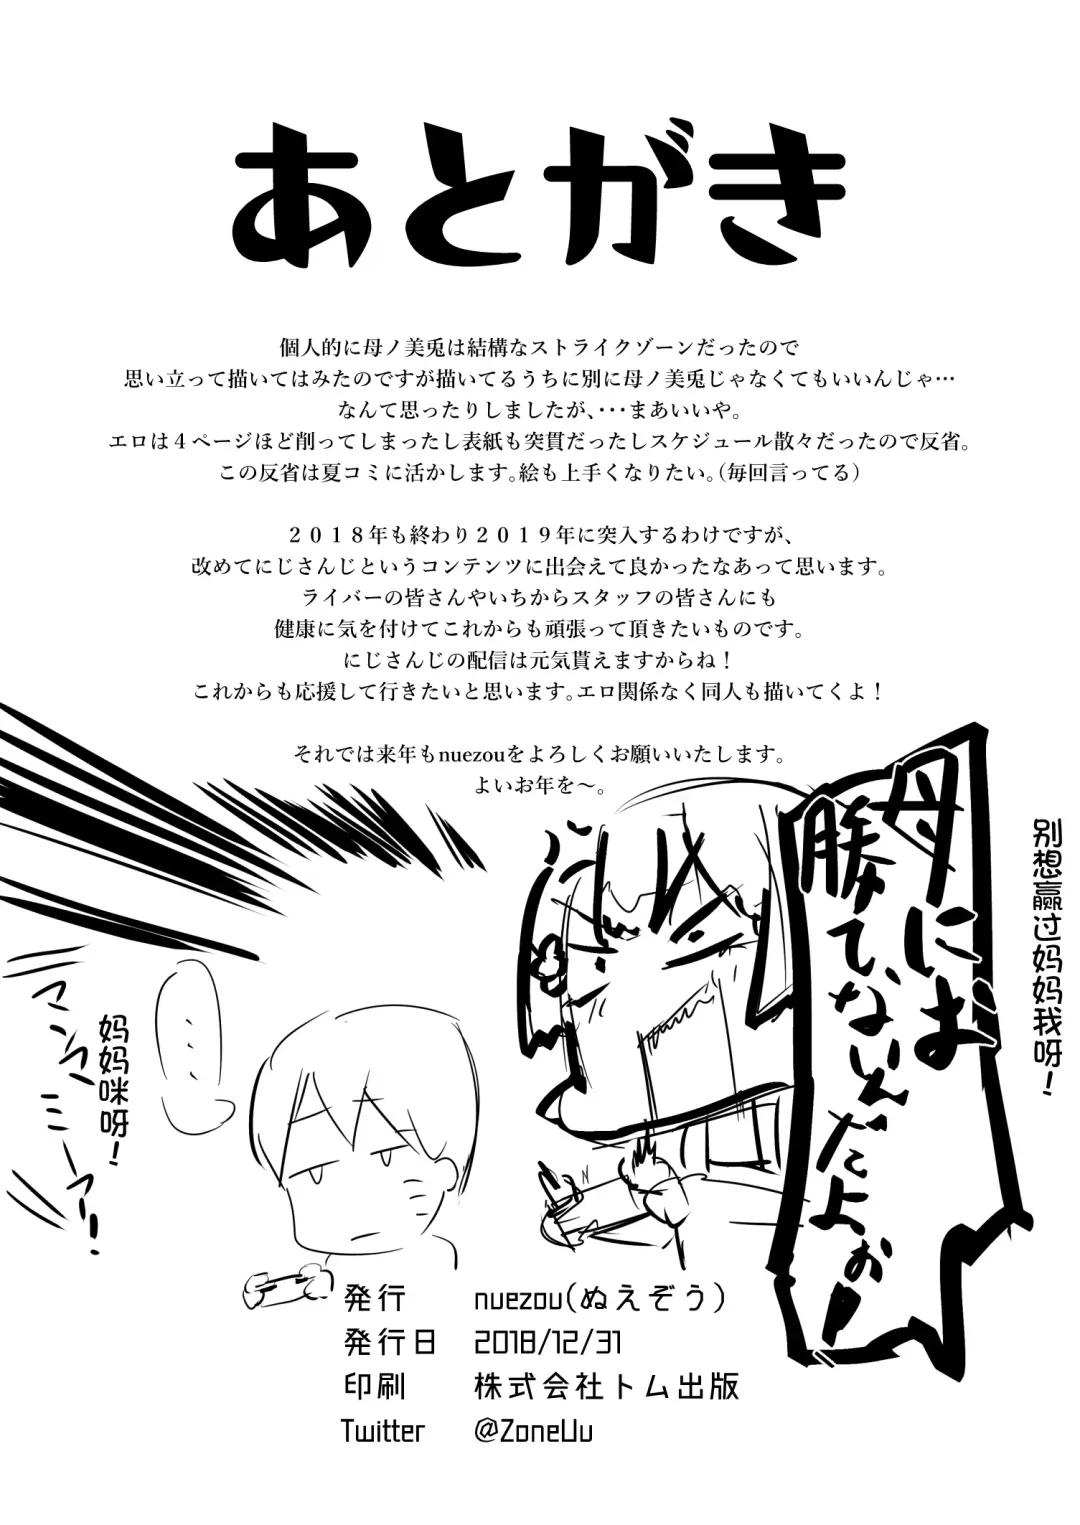 あとがき
個人的に母ノ美兎は結構なストライクゾーンだったので
思い立って描いてはみたのですが描いてるうちに別に母ノ美兎じゃなくてもいいんじゃ…
なんて思ったりしましたが、・・・まあいいや。
エロは４ページほど削ってしまったし表紙も突貫だったしスケジュール散々だったので反省。
この反省は夏コミに活かします。絵も上手くなりたい。（毎回言ってる）
２０１８年も終わり２０１９年に突入するわけですが、
改めてにじさんじというコンテンツに出会えて良かったなあって思います。
ライバーの皆さんやいちからスタッフの皆さんにも
健康に気を付けてこれからも頑張って頂きたいものです。
にじさんじの配信は元気貰えますからね！
これからも応援して行きたいと思います。エロ関係なく同人も描いてくよ！
それでは来年もnuezouをよろしくお願いいたします。
よいお年を〜。
别想赢过妈妈我呀！
母には
勝てないんだよぉ！
・・・・
妈妈咪呀！
マンマ
ミーアー！
発行 nuezou(ぬえぞう)
発行日 2018/12/31
印刷 株式会社トム出版
Twitter @ZoneUu